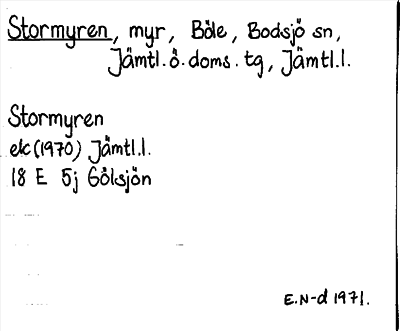 Stormyren, myr, Böle, Bodsjö sn,
Jämtl.ö.doms.tg, Jämtl.l.
Stormyren
ek(1970) Jämtl.l.
18 E 5j Gölsjön
E.N-d 1971.